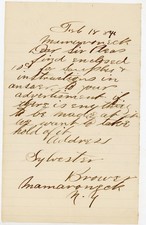 Feb 18
Mamaroneck
Dear Sir Pleas
find enclosed
10 c for
instructions in
answer to your
advertisement if
there is any thing
to be made at it
we want to take
hold of it
Address
Sylvester
Brower
Mamaroneck
N. Y